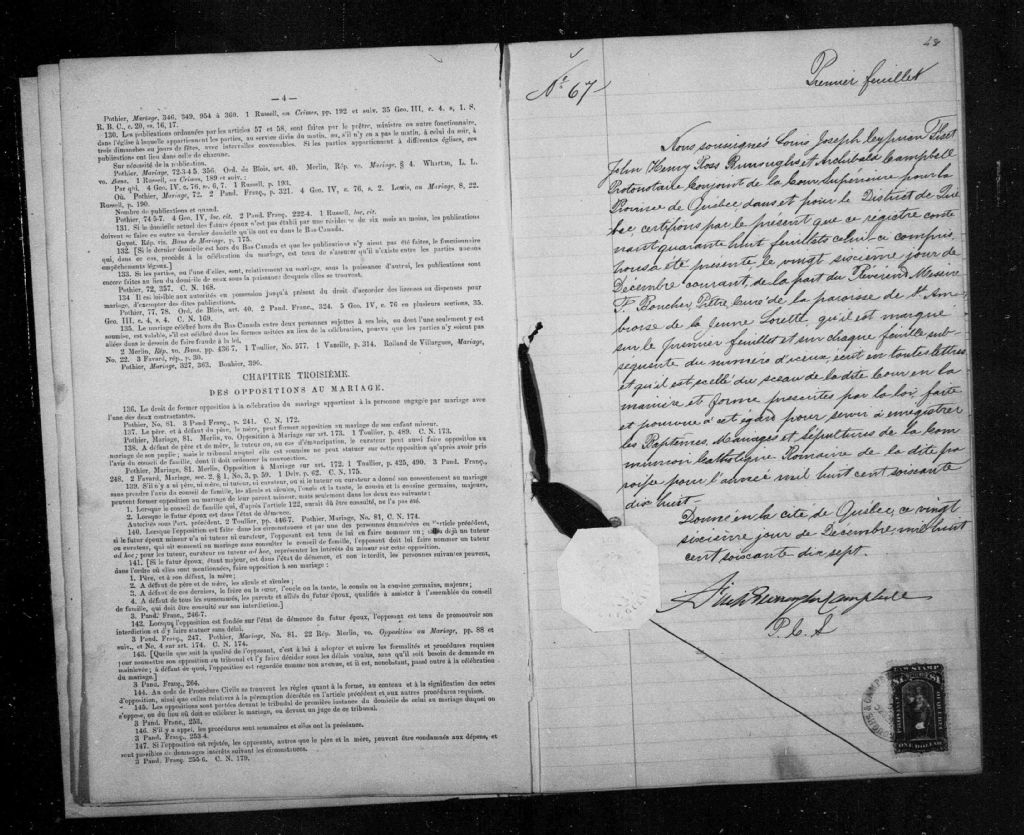 — 4 —
Pothier, Mariage, 346, 349, 954 à 360. 1 Russell, on Crimes, pp. 192 et suiv. 35 Geo. III, c. 4, s. 1. S.
R. B. C., c. 20, ss. 16, 17.
130. Les publications ordonnées par les articles 57 et 58, sont faites par le prêtre, ministre ou autre fonctionnaire,
dans l'église à laquelle appartiennent les parties, au service divin du matin, ou, s'il n'y en a pas le matin, à celui du soir, à
trois dimanches ou jours de fêtes, avec intervalles convenables. Si les parties appartiennent à différentes églises, ces
publications ont lieu dans celle de chacune.
Sur nécessité de la publication.
Pothier, Mariage, 72-3 4 5. 356. Ord. de Blois, art. 40. Merlin, Rép. vo. Mariage, § 4. Wharton, L. L.
vo. Bans. 1 Russell, on Crimes, 189 et suiv.:
Par qui. 4 Geo. IV, c. 76, ss. 6, 7. 1 Russell, p. 193.
Où. Pothier, Mariage, 72. 2 Pand. Franç., p. 321. 4 Geo. IV, c. 76, s. 2. Lewis, on Mariage, 8, 22.
Russell, p. 190.
Nombre de publications et quand.
Pothier, 74 5-7. 4 Geo. IV, loc. cit. 2 Pand. Franç., 222-4. 1 Russell, loc. cit.
131. Si le domicile actuel des futurs époux n'est pas établi par une résidence de six mois au moins, les publications
doivent se faire en outre au dernier domicile qu'ils ont eu dans le Bas-Canada.
Guyot. Rép. vis. Bans de Mariage, p. 175.
132. [Si le dernier domicile est hors du Bas-Canada et que les publications n'y aient pas été faites, le fonctionnaire
qui, dans ce cas, procède à la célébration du mariage, est tenu de s'assurer qu'il n'existe entre les parties aucuns
empêchements légaux.]
133. Si les parties, ou l'une d'elles, sont, relativement au mariage, sous la puissance d'autrui, les publications sont
encore faites au lieu du domicile de ceux sous la puissance desquels elles se trouvent.
Pothier, 72, 357. C. N. 168.
134 Il est loisible aux autorités en possession jusqu'à présent du droit d'accorder des licences ou dispenses pour
mariage, d'exempter des dites publications.
Pothier, 77, 78. Ord. de Blois, art. 40. 2 Pand. Franc., 324. 5 Geo. IV, c. 76 en plusieurs sections, 35.
Geo. III, c. 4, s. 4. C. N. 169.
135. Le mariage célébré hors du Bas-Canada entre deux personnes sujettes à ses lois, ou dont l'une seulement y est
soumise, est valable, s'il est célébré dans les formes usitées au lieu de la célébration, pourvu que les parties n'y soient pas
allées dans le dessein de faire fraude à la loi.
2 Merlin, Rép. vo. Bans, pp. 436 7. 1 Toullier, No. 577. 1 Vazeille, p. 314. Rolland de Villargues, Mariage,
No. 22. 3 Favard, rép., p. 30.
Pothier, Mariage, 327, 363. Bouhier, 396.
CHAPITRE TROISIÉME.
DES OPPOSITIONS AU MARIAGE.
136. Le droit de former opposition à la célébration du mariage appartient à la personne engagée par mariage avec
l'une des deux contractantes.
Pothier, No. 81. 3 Pand. Franç., p. 241. C. N. 172.
137. Le père, et à défaut du père, la mère, peut former opposition au mariage de son enfant mineur.
Pothier, Mariage, 81. Merlin, vo. Opposition à Mariage sur art. 173. 1 Toullier, p. 489. C. N. 173.
138. A défaut de père et de mère, le tuteur ou, en cas d'émancipation, le curateur peut aussi faire opposition au
mariage de son pupille; mais le tribunal auquel elle est soumise ne peut statuer sur cette opposition qu'après avoir pris
l'avis du conseil de famille, dont il doit ordonner la convocation.
Pothier, Mariage, 81. Merlin, Opposition à Mariage sur art. 172. 1 Toullier, p. 425, 490. 3 Pand. Franç.,
248. 2 Favard, Mariage, sec. 2, § 1, No. 3, p. 59. 1 Delv. p. 62. C. N. 175.
139. S'il n'y a ni père, ni mère, ni tuteur, ni curateur, ou si le tuteur ou curateur a donné son consentement au mariage
sans prendre l'avis du conseil de famille, les aïeuls et aïeules, l'oncle et la tante, le cousin et la cousine germains, majeurs,
peuvent former opposition au mariage de leur parent mineur, mais seulement dans les deux cas suivants:
1. Lorsque le conseil de famille qui, d'après l'article 122, aurait dû être consulté, ne l'a pas été.
2. Lorsque le futur époux est dans l'état de démence.
Autorités sous l'art. précédent. 2 Toullier, pp. 446-7. Pothier, Mariage, No. 81, C. N. 174.
140. Lorsque l'opposition est faite dans les circonstances et par une des personnes énumérées en l'article précédent,
si le futur époux mineur n'a ni tuteur ni curateur, l'opposant est tenu de lui en faire nommer un; s'il a déjà un tuteur
ou curateur, qui ait consenti au mariage sans consulter le conseil de famille, l'opposant doit lui faire nommer un tuteur
ad hoc; pour les tuteur, curateur ou tuteur ad hoc, représenter les intérêts du mineur sur cette opposition.
141. [Si le futur époux, étant majeur, est dans l'état de démence, et non interdit, les personnes suivantes peuvent,
dans l'ordre où elles sont mentionnées, faire opposition à son mariage:
1. Père, et à son défaut, la mère;
2. A défaut de père et de mère, les aïeuls et aïeules;
3. A défaut de ces derniers, le frère ou la sœur, l'oncle ou la tante, le cousin ou la cousine germains, majeurs;
4. A défaut de tous les susnommés, les parents et alliés du futur époux, qualifiés à assister à l'assemblée du conseil
de famille, qui doit être consulté sur son interdiction.]
3 Pand. Franç., 246-7.
142. Lorsque l'opposition est fondée sur l'état de démence du futur époux, l'opposant est tenu de promouvoir son
interdiction et d'y faire statuer sans délai.
3 Pand. Franç., 247. Pothier, Mariage, No. 81. 22 Rép. Merlin, vo. Opposition au Mariage, pp. 88 et
suiv., et No. 4 sur art. 174. C. N. 174.
143. [Quelle que soit la qualité de l'opposant, c'est à lui à adopter et suivre les formalités et procédures requises
pour soumettre son opposition au tribunal et l'y faire décider sous les délais voulus, sans qu'il soit besoin de demande en
mainlevée; à défaut de quoi, l'opposition est regardée comme non avenue, et il est, nonobstant, passé outre à la célébration
du mariage.]
3 Pand. Franç., 264.
144. Au code de Procédure Civile se trouvent les règles quant à la forme, au contenu et à la signification des actes
d'opposition, ainsi que celles relatives à la péremption décrétée en l'article précédent et aux autres procédures requises.
145. Les oppositions sont portées devant le tribunal de première instance du domicile de celui au mariage duquel on
s'oppose, ou du lieu où doit se célébrer le mariage, ou devant un juge de ce tribunal.
3 Pand. Franc., 253.
146. S'il y a appel, les procédures sont sommaires et elles ont la préséance.
3 Pand. Franç., 253-4.
147. Si l'opposition est rejetée, les opposants, autres que le père et la mère, peuvent être condamnés aux dépens, et
sont passibles de dommages intérêts suivant les circonstances.
3 Pand. Franç. 255-6. C. N. 179.
48
No. 67
Premier feuillet
Nous soussignés Louis Joseph Cyprian Fiset
John Henry Ross Burroughs et Archibald Campbell
Protonotaire Conjoint de la Cour Supérieure pour la
Province de Québec dans et pour le District de Qué
bec, certifions par le présent que ce régistre conte
nant quarante huit feuillets celui-ce compris,
nous a été présenté le vingt sixcieme jour de
Décembre courant, de la part du Révérend Messire
F. Boucher, Prêtre, curé de la paroisse de St. Am-
broise de la Jeune Lorette, qu'il est marqué
sur le premier feuillet et sur chaque feuille sub-
séquente du numéro d'iceux, écrit en toutes lettres
et qu'il est scellé du sceau de la dite Cour en la
manière et forme prescrites par la loi, faite
et pourvue à cet égard pour servir à enregistrer
les Baptêmes, Mariages et Sépultures de la Com
munion Catholique Romaine de la dite pa
roisse pour l'année mil huit cent soixante
dix huit.
Donné en la cité de Québec, ce vingt
sixcieme jour de Décembre, mil huit
cent soixante dix sept.
Fiset Burroughs Campbell
P. C. S
LAW STAMP
ONE DOLLAR